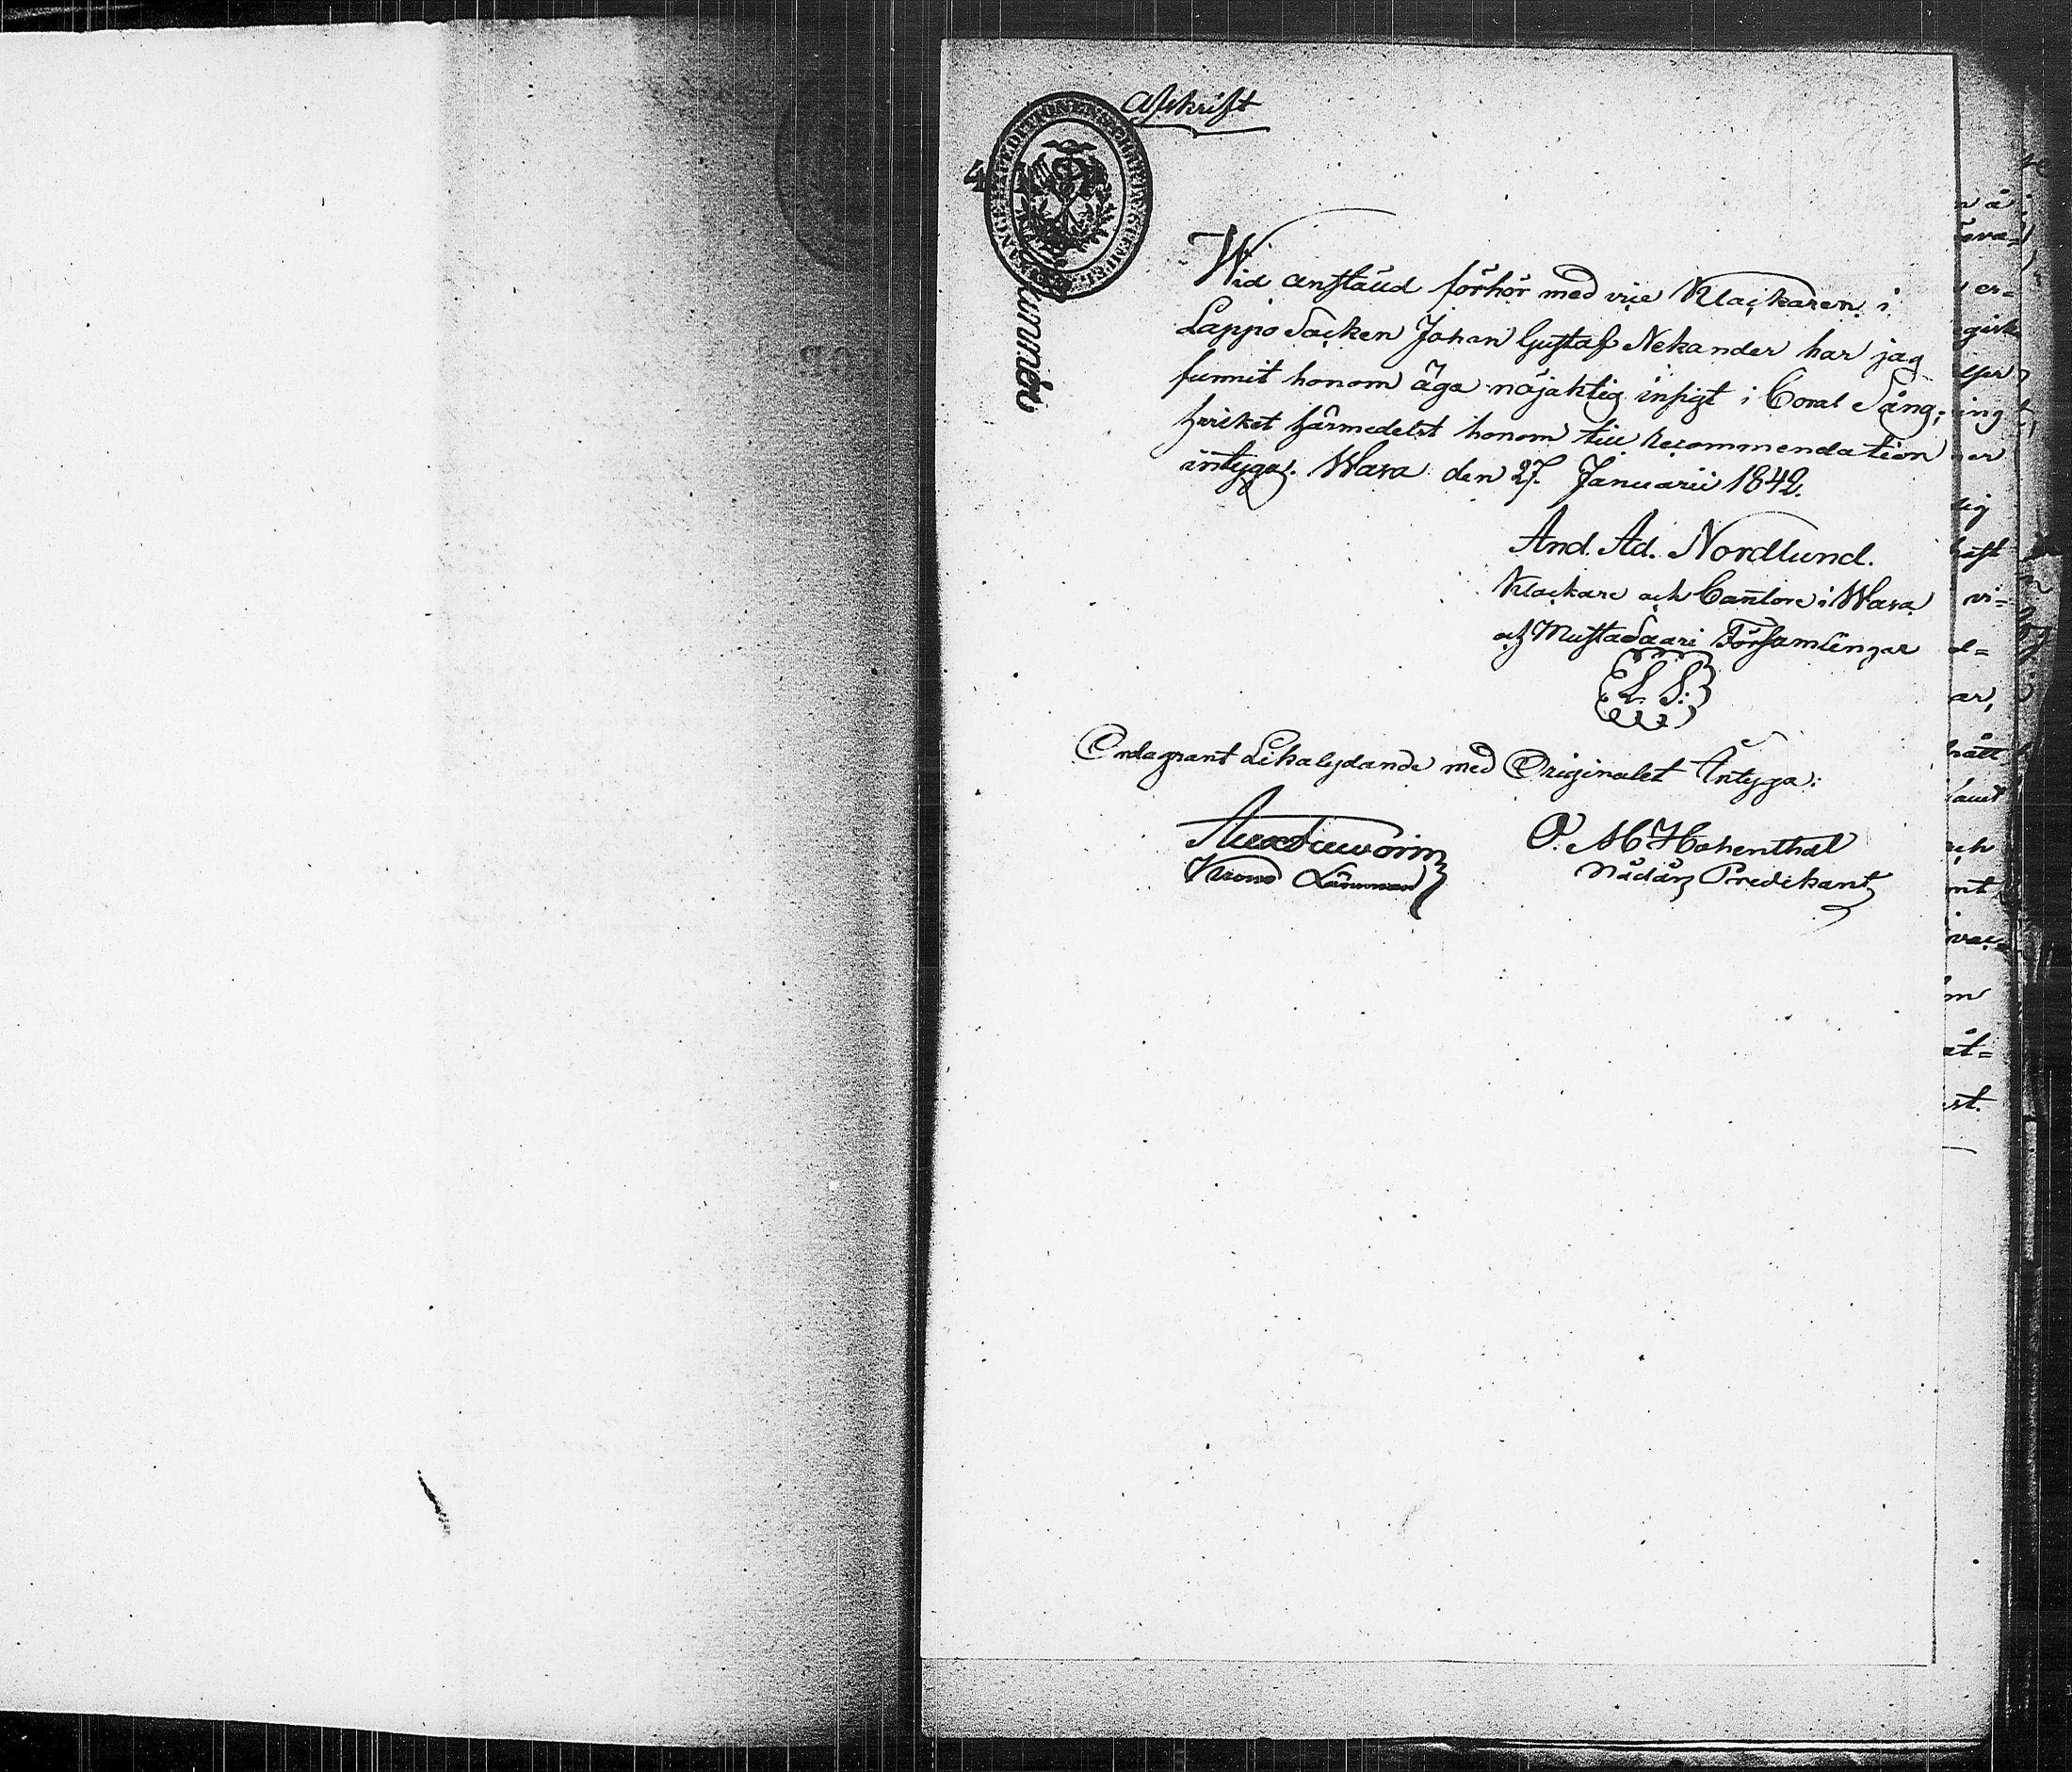 Afskrift
Wid anstäld förhör med vice Klockaren i
Lappo Socken Johan Gustaf Nekander har jag
funnit honom äga nöjaktig insigt i Coral Sång;
hvilket härmedelst honom till recommendation
intygas. Wasa den 27. Januarii 1842.
And. Ad. Nordlund.
Klockare och Cantor i Wasa
och MustaSaari Församlingar
L. S.
Ordagrant Likalydande med Originalet Intyga:
O. M Hohenthal
Krono Länsman
Nådårs Predikant